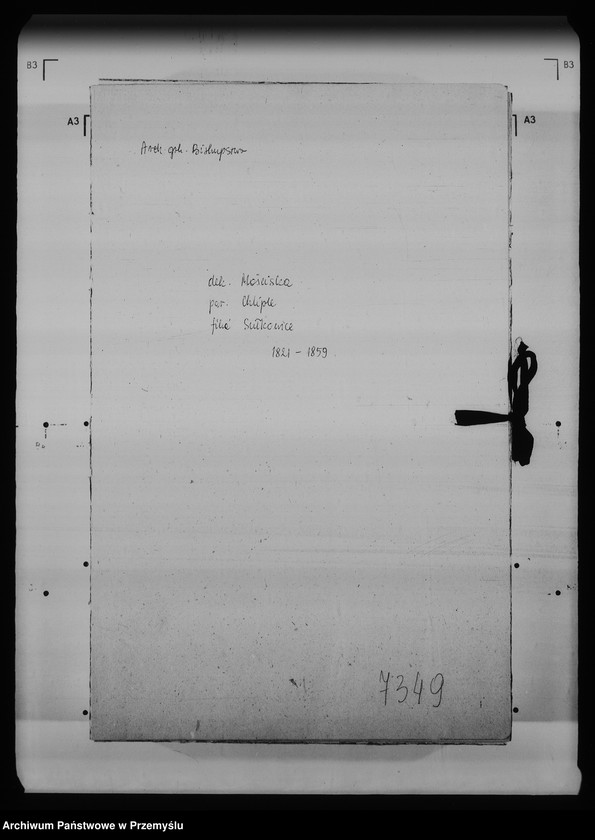 B3
B3
A3
A3
Arch. gr.k. Biskupstwa
dek. Mościska
par. Chliple
filia Sułkowice
1821 - 1859
7349
Archiwum Państwowe w Przemyślu